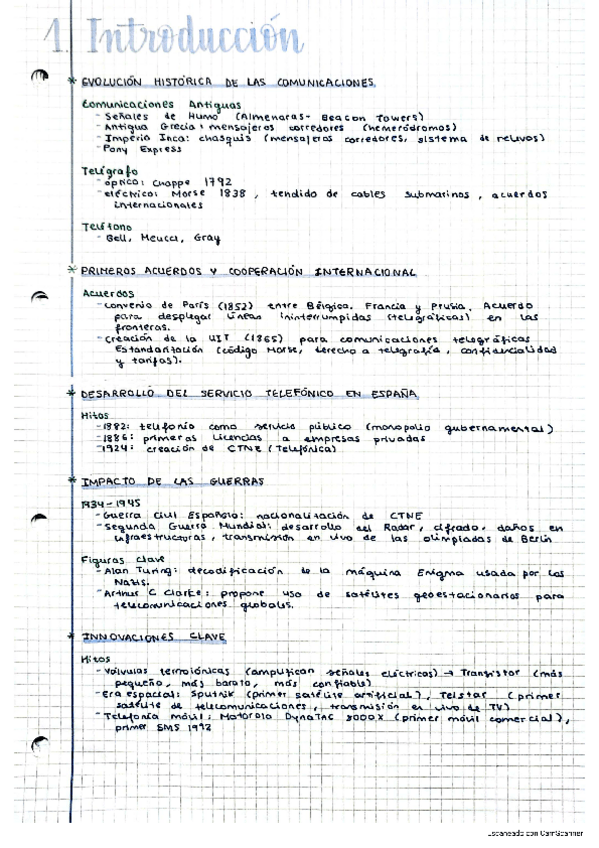 1. Introducción
* EVOLUCIÓN HISTÓRICA DE LAS COMUNICACIONES
Comunicaciones Antiguas
- Señales de Humo (Almenaras - Beacon Towers)
- Antigua Grecia: mensajeros corredores (hemeródromos)
- Imperio Inca: chasquis (mensajeros corredores, sistema de relevos)
- Pony Express
Telégrafo
- óptico: Chappe 1792
- eléctrico: Morse 1838, tendido de cables submarinos, acuerdos
internacionales
Teléfono
- Bell, Meucci, Gray
* PRIMEROS ACUERDOS Y COOPERACIÓN INTERNACIONAL
Acuerdos
- Convenio de París (1852) entre Bélgica, Francia y Prusia. Acuerdo
para desplegar líneas ininterrumpidas (telegráficas) en las
fronteras.
- Creación de la UIT (1865) para comunicaciones telegráficas
Estandarización (código Morse, derecho a telegrafía, confidencialidad
y tarifas).
* DESARROLLO DEL SERVICIO TELEFÓNICO EN ESPAÑA
Hitos
- 1882: telefonía como servicio público (monopolio gubernamental)
- 1886: primeras licencias a empresas privadas
- 1924: creación de CTNE (Telefónica)
* IMPACTO DE LAS GUERRAS
1934-1945
- Guerra Civil Española: nacionalización de CTNE
- Segunda Guerra Mundial: desarrollo del Radar, cifrado, daños en
infraestructuras, transmisión en vivo de las olimpiadas de Berlín
Figuras clave
- Alan Turing: decodificación de la máquina Enigma usada por los
Nazis.
- Arthur C Clarke: propone uso de satélites geoestacionarios para
telecomunicaciones globales.
* INNOVACIONES CLAVE
Hitos
- Válvulas termoiónicas (amplifican señales eléctricas) → Transistor (más
pequeño, más barato, más confiable)
- Era espacial: Sputnik (primer satélite artificial), Telstar (primer
satélite de telecomunicaciones, transmisión en vivo de TV)
- Telefonía móvil: Motorola DynaTAC 8000X (primer móvil comercial),
primer SMS 1992
Escaneado con CamScanner